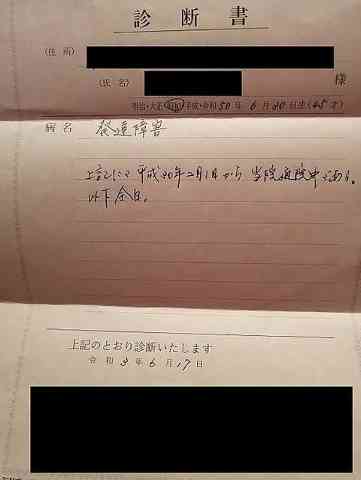 診断書
(住所)
(氏名) 様
明治・大正・昭和・平成・令和 50年 6月 20日生(45才)
病名 発達障害
上記にて平成20年二月1日から当院通院中である。
以下余白。
上記のとおり診断いたします
令和 3年 6月 17日